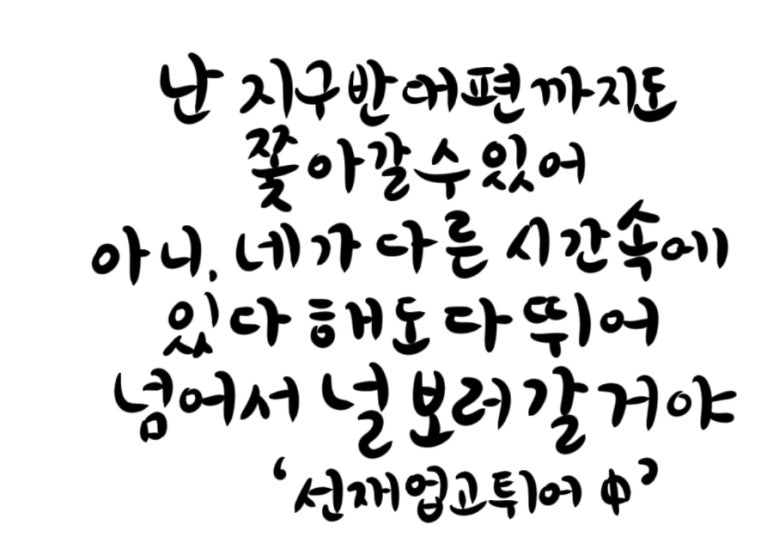 난 지구반대편까지도
쫓아갈수있어
아니, 네가 다른 시간속에
있다해도 다 뛰어
넘어서 널 보러갈거야
‘선재업고튀어 中’